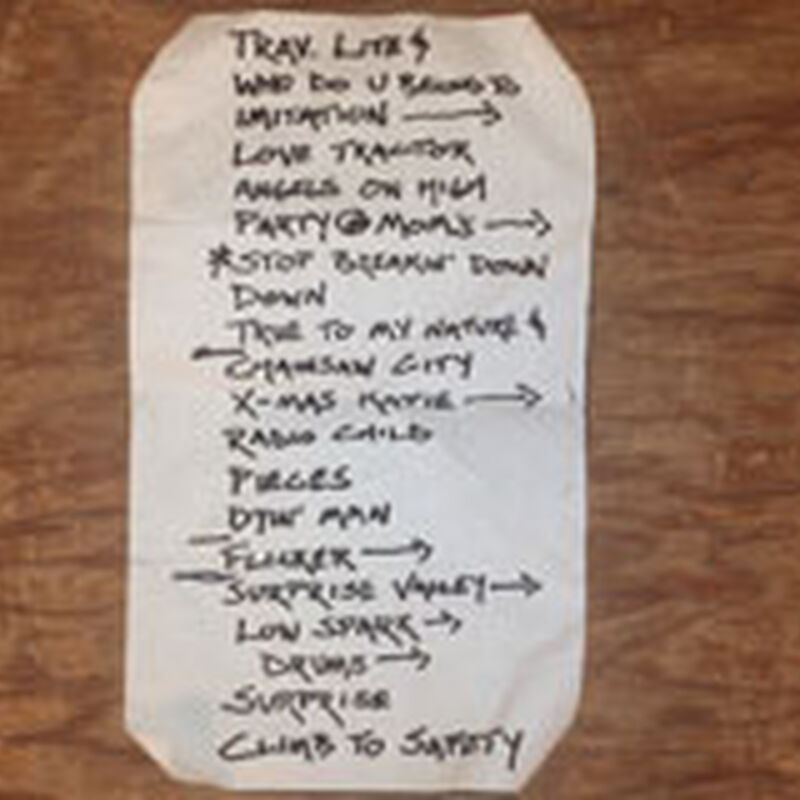 TRAV. LITE $
WHO DO U BELONG TO
IMITATION →
LOVE TRACTOR
ANGELS ON HIGH
PARTY @ MOM'S →
*STOP BREAKIN' DOWN
DOWN
TRUE TO MY NATURE $
CHAINSAW CITY
X-MAS KATIE →
RADIO CHILD
PIECES
DYIN' MAN
FLICKER →
SURPRISE VALLEY →
LOW SPARK →
DRUMS →
SURPRISE
CLIMB TO SAFETY